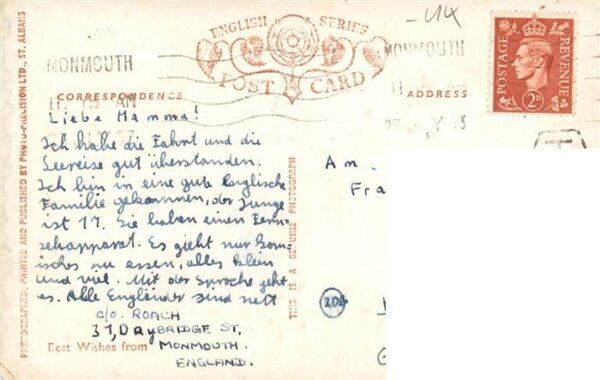 ENGLISH SERIES
POST CARD
CORRESPONDENCE
ADDRESS
MONMOUTH
MONMOUTH
POSTAGE
REVENUE
2D
T
PHOTOGRAPHED, PRINTED AND PUBLISHED BY PHOTO-PRECISION LTD., ST. ALBANS
Liebe Mamma!
Ich habe die Fahrt und die
Seereise gut überstanden.
Ich bin in eine gute Englische
Familie gekommen, der Junge
ist 17. Sie haben einen Fern-
sehapparat. Es gieht nur
zu essen, alles klein
und viel. Mit der Sprache geht
es. Alle Engländer sind nett
c/o. ROACH
37, DAYBRIDGE ST,
Best Wishes from MONMOUTH.
ENGLAND.
THIS IS A GENUINE PHOTOGRAPH
An.
Fra
204